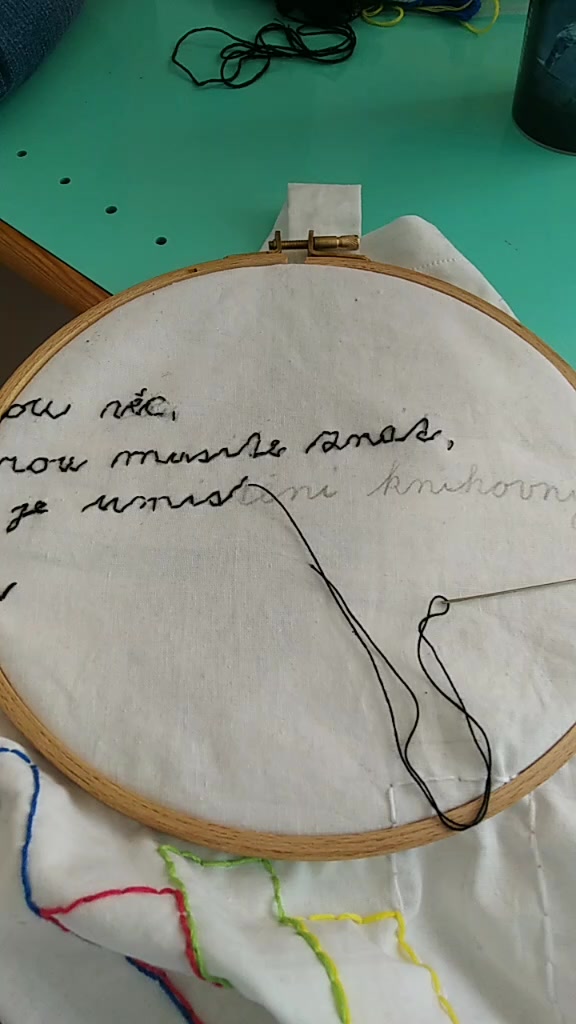 ou věc,
rou musíte znát,
je umístění knihovny